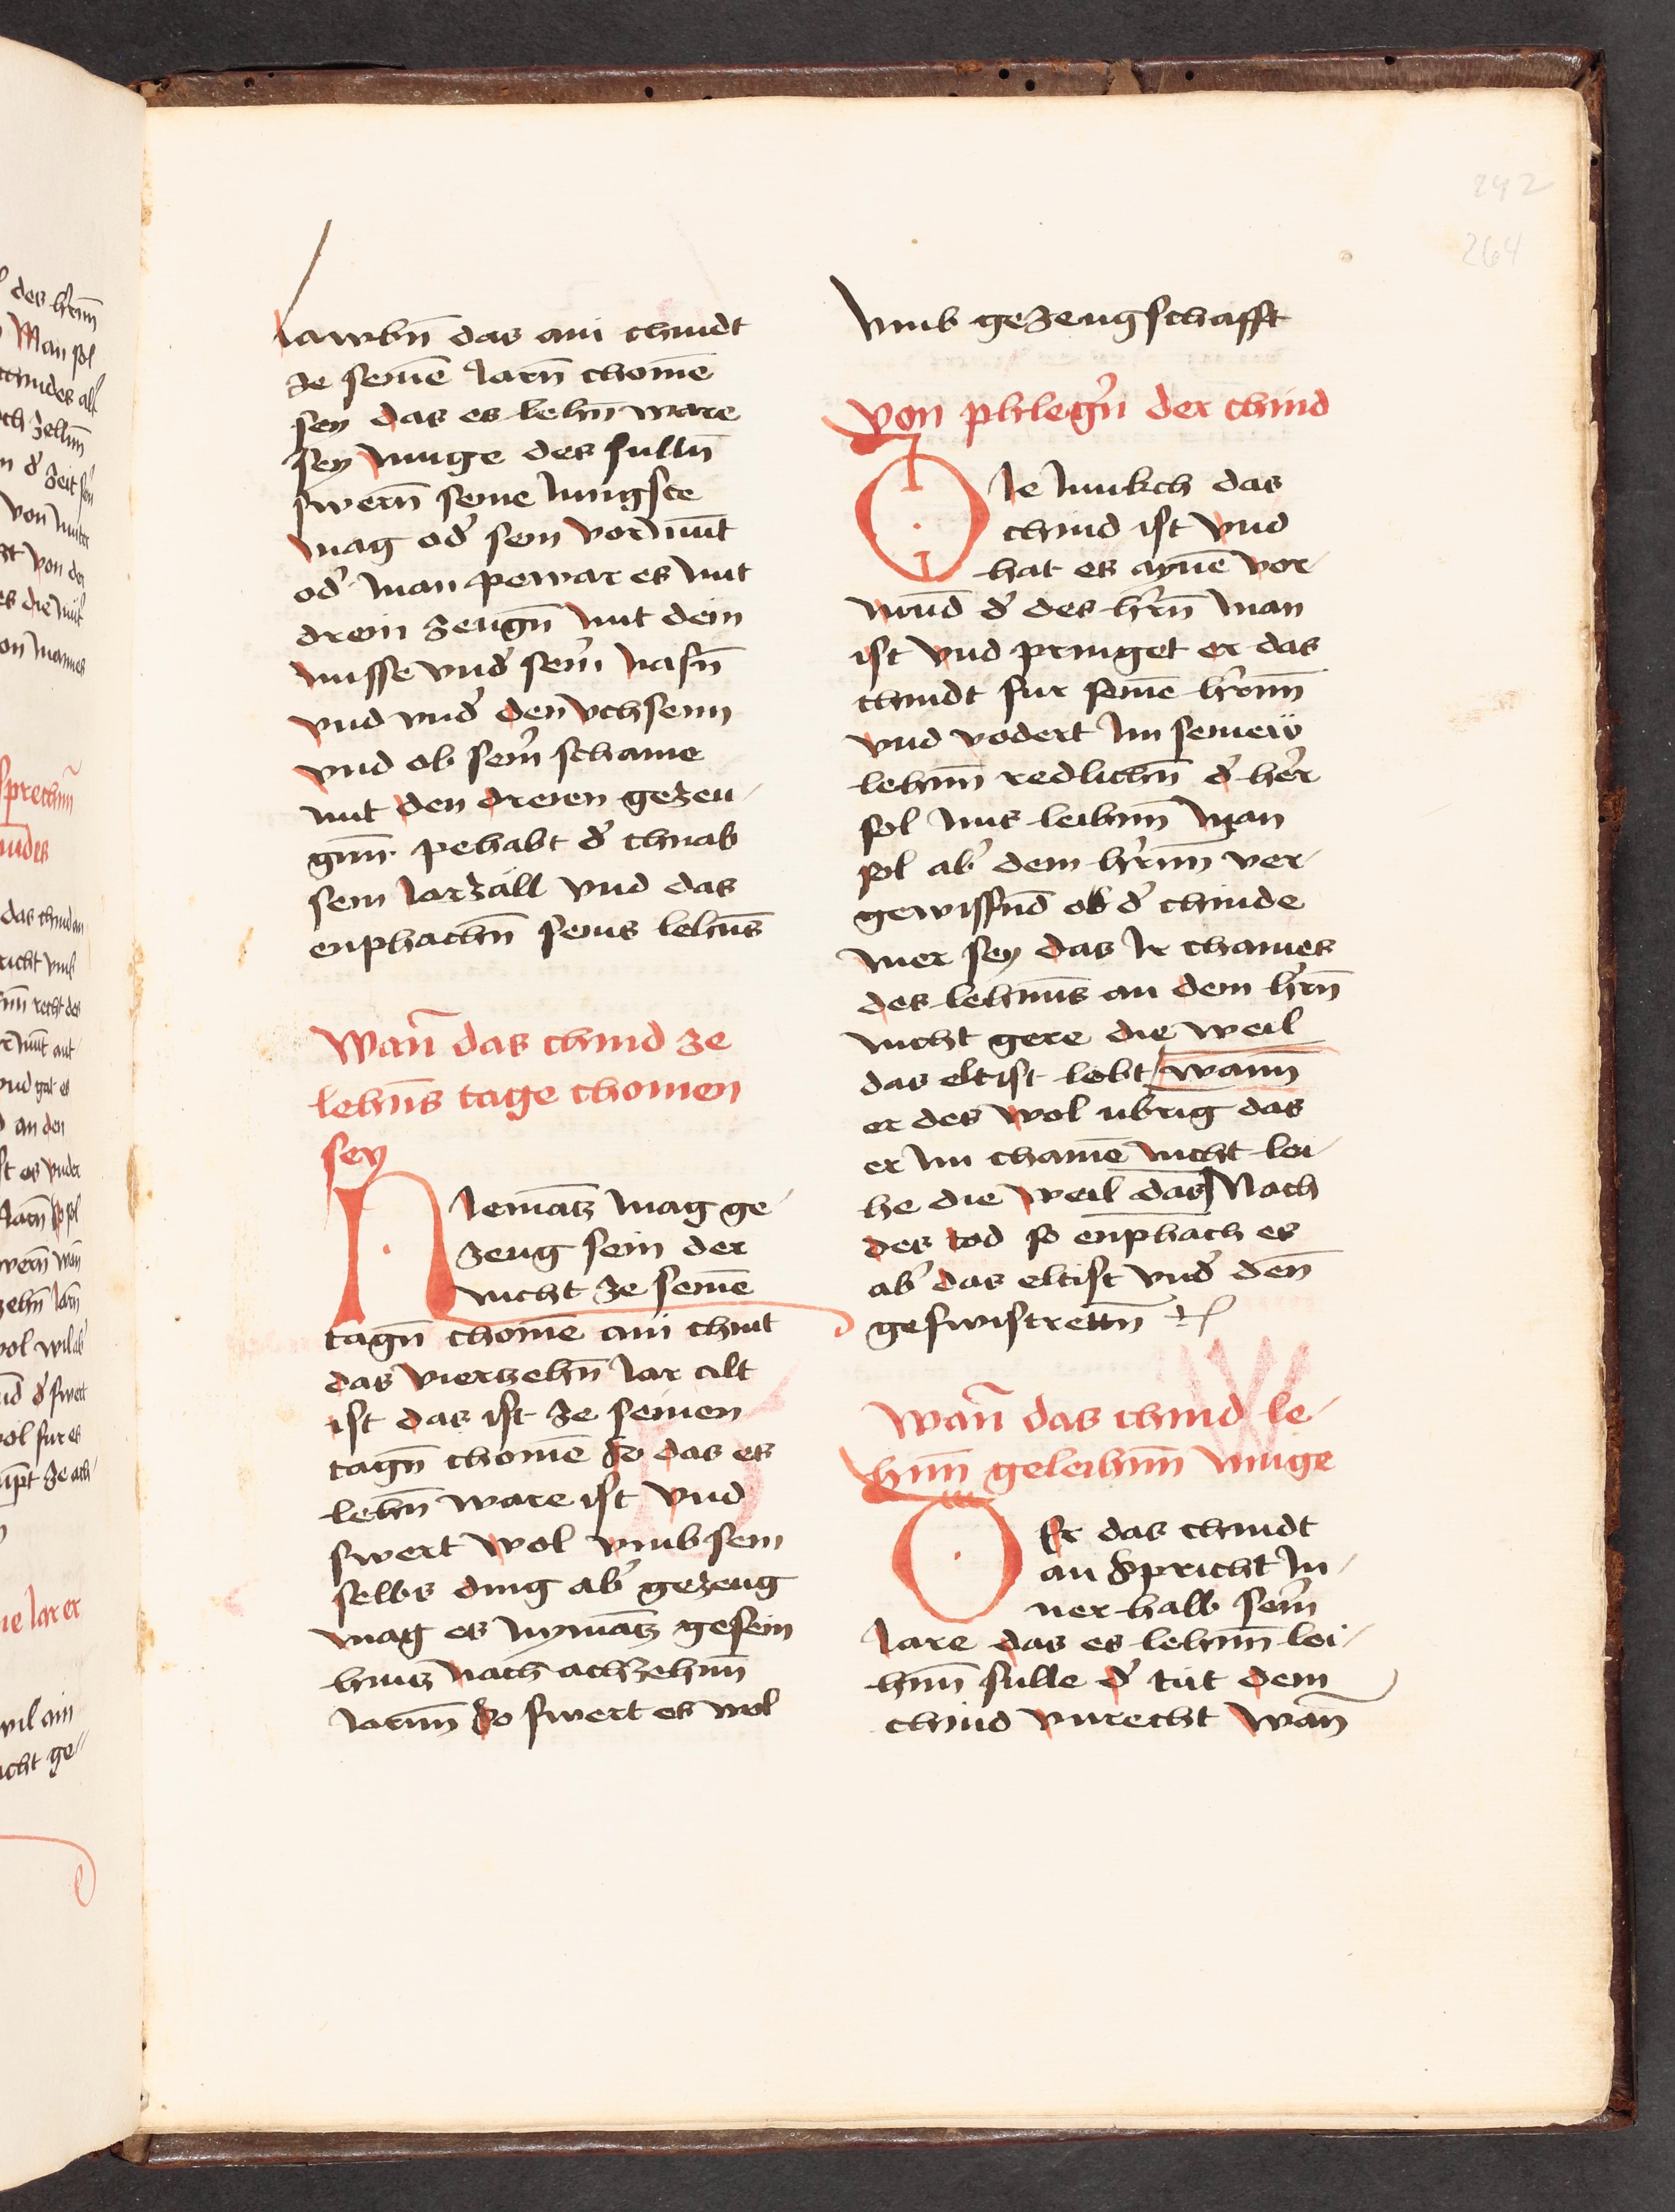 242
264
lawbn̄ das ain chindt
ze seinē Jarn̄ chomē
sey das es lehn̄ ware
sey muge des sulln̄
swern̄ seine Jungste
mag od̕ sein vormūt
od̕ man pewar es mit
drein zeugn̄ mit dem
misse vnd̕ sein̕ nasn̄
vnd vnd̕ den vchsenn
vnd ob sein̕ schame
mit den dreien gezeu-
gnn̄ pehabt d̕ chnab
sein Jarzall vnd das
enphachn̄ seins lehn̄s
Wan̄ das chind ze
lehn̄s tage chomen
sey
NIemātz mag ge-
zeug sein der
nicht ze seinē
tagn̄ chomē ain chint
das vierzehn̄ Jar alt
ist das ist ze seinen
tagn̄ chomē So das es
lehn̄ ware ist vnd
swert wol vmb sein
selbs ding ab̕ gezeug
mag es nymātz gesein
hincz nach achzehnn̄
Jarnn̄ So swert es wol
vmb gezeugschafft
Von phleg̕n der chind
DIe Junkch das
chind ist vnd
hat es aynē vor-
mūd d̕ des h̕rn̄ man
ist vnd pringet er das
chindt fur seinē h̕rnn̄
vnd vodert Im seinew
lehnn̄ redlichn̄ d̕ her̕
sol Ims leihnn̄ Man
sol ab̕ dem h̕rnn̄ ver-
gewissnd̄ ob d̕ chinde
mer sey das Ir chaines
des lehnn̄s an dem h̕rn̄
nicht gere die weil
das eltist lebt wann̄
er des wol ubrig das
er Im chainē nicht lei-
he die weil das Nach
des tod so enphach es
ab̕ das eltist vnd̕ den̄
geswistrettn̄
Wan̄ das chind le-
hnn̄ geleihnn̄ muge
DEr das chindt
an Spricht In-
ner halb sein̕
Jare das es lehnn̄ lei-
hnn̄ sulle d̕ tut dem
chind vnrecht wan̄